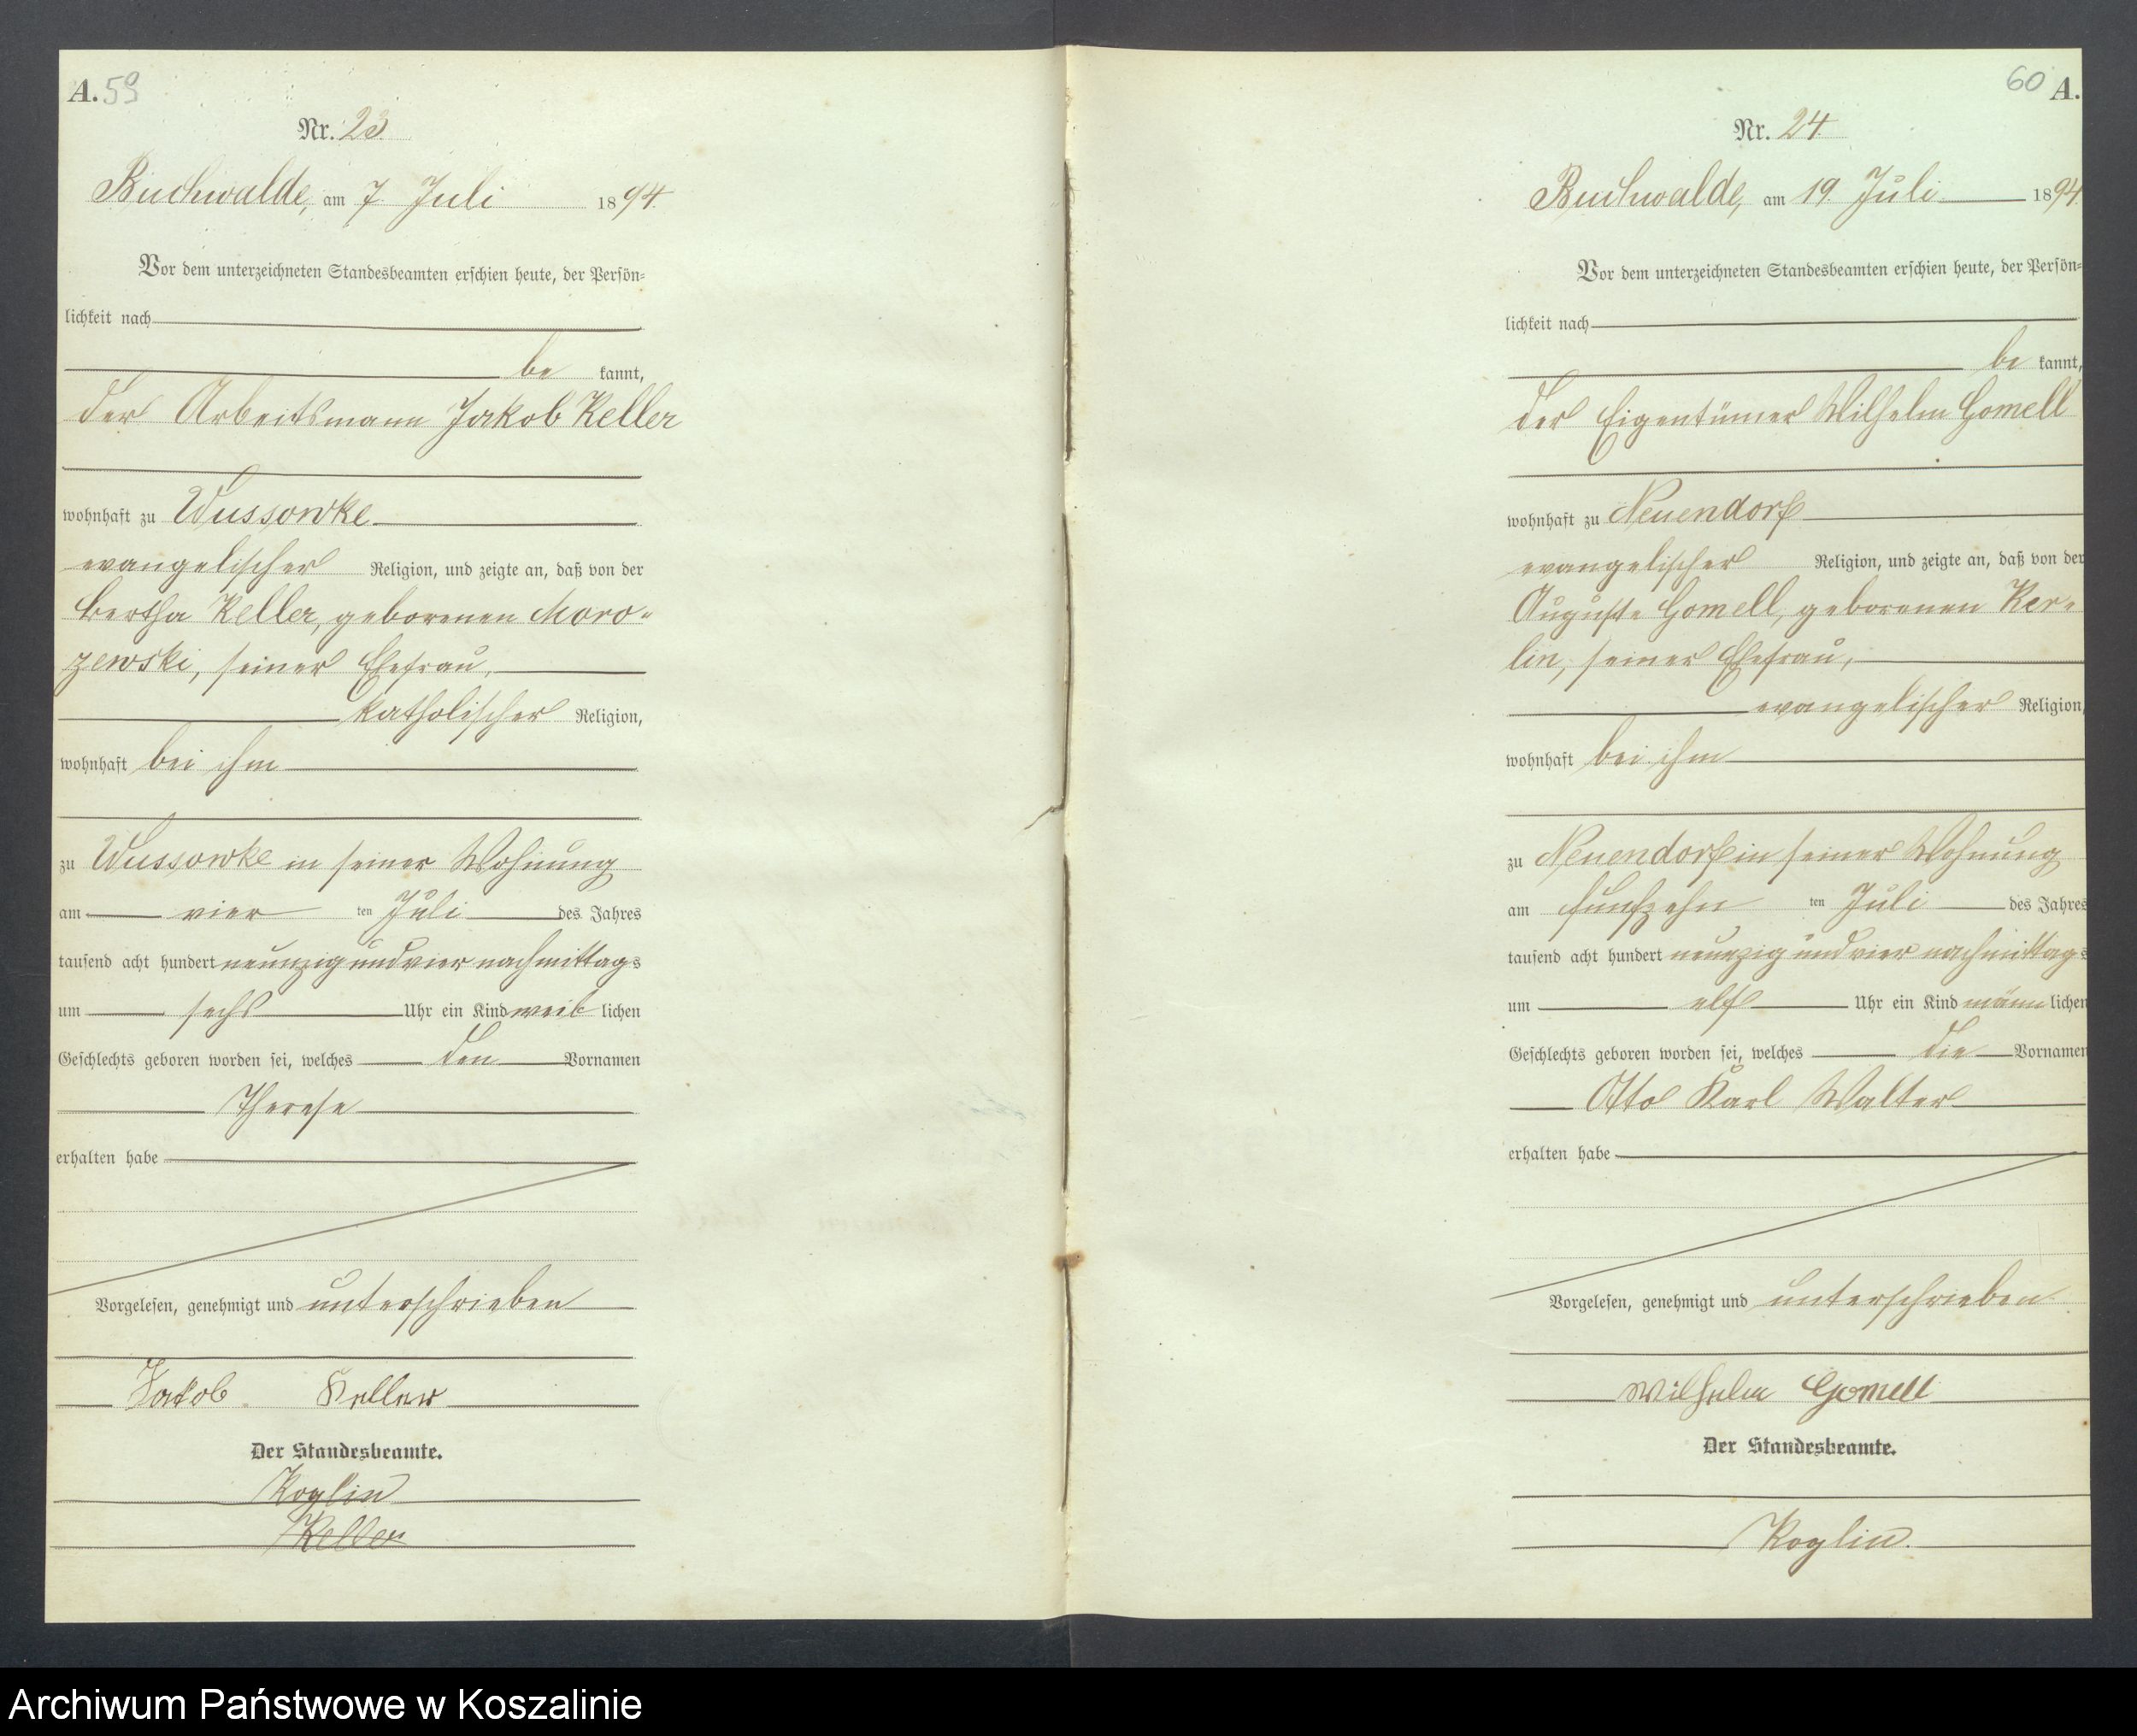 A. 59
Nr. 23.
Buchwalde, am 7. Juli 1894.
Vor dem unterzeichneten Standesbeamten erschien heute, der Persön=
lichkeit nach
be kannt,
der Arbeitsmann Jakob Keller
wohnhaft zu Wussowke
evangelischer Religion, und zeigte an, daß von der
Bertha Keller, geborenen Moro-
zewski, seiner Ehefrau,
katholischer Religion,
wohnhaft bei ihm
zu Wussowke in seiner Wohnung
am vier ten Juli des Jahres
tausend acht hundert neunzig und vier nachmittags
um sechs Uhr ein Kind weib lichen
Geschlechts geboren worden sei, welches den Vornamen
Therese
erhalten habe
Vorgelesen, genehmigt und unterschrieben
Jakob Keller
Der Standesbeamte.
Koglin
Keller
60 A.
Nr. 24
Buchwalde, am 19. Juli 1894.
Vor dem unterzeichneten Standesbeamten erschien heute, der Persön=
lichkeit nach
be kannt,
der Eigentümer Wilhelm Gomell
wohnhaft zu Neuendorf
evangelischer Religion, und zeigte an, daß von der
Auguste Gomell, geborenen Ker-
lin, seiner Ehefrau,
evangelischer Religion,
wohnhaft bei ihm
zu Neuendorf in seiner Wohnung
am fünfzehn ten Juli des Jahres
tausend acht hundert neunzig und vier nachmittags
um elf Uhr ein Kind männ lichen
Geschlechts geboren worden sei, welches die Vornamen
Otto Karl Walter
erhalten habe
Vorgelesen, genehmigt und unterschrieben
Wilhelm Gomell
Der Standesbeamte.
Koglin.
Archiwum Państwowe w Koszalinie